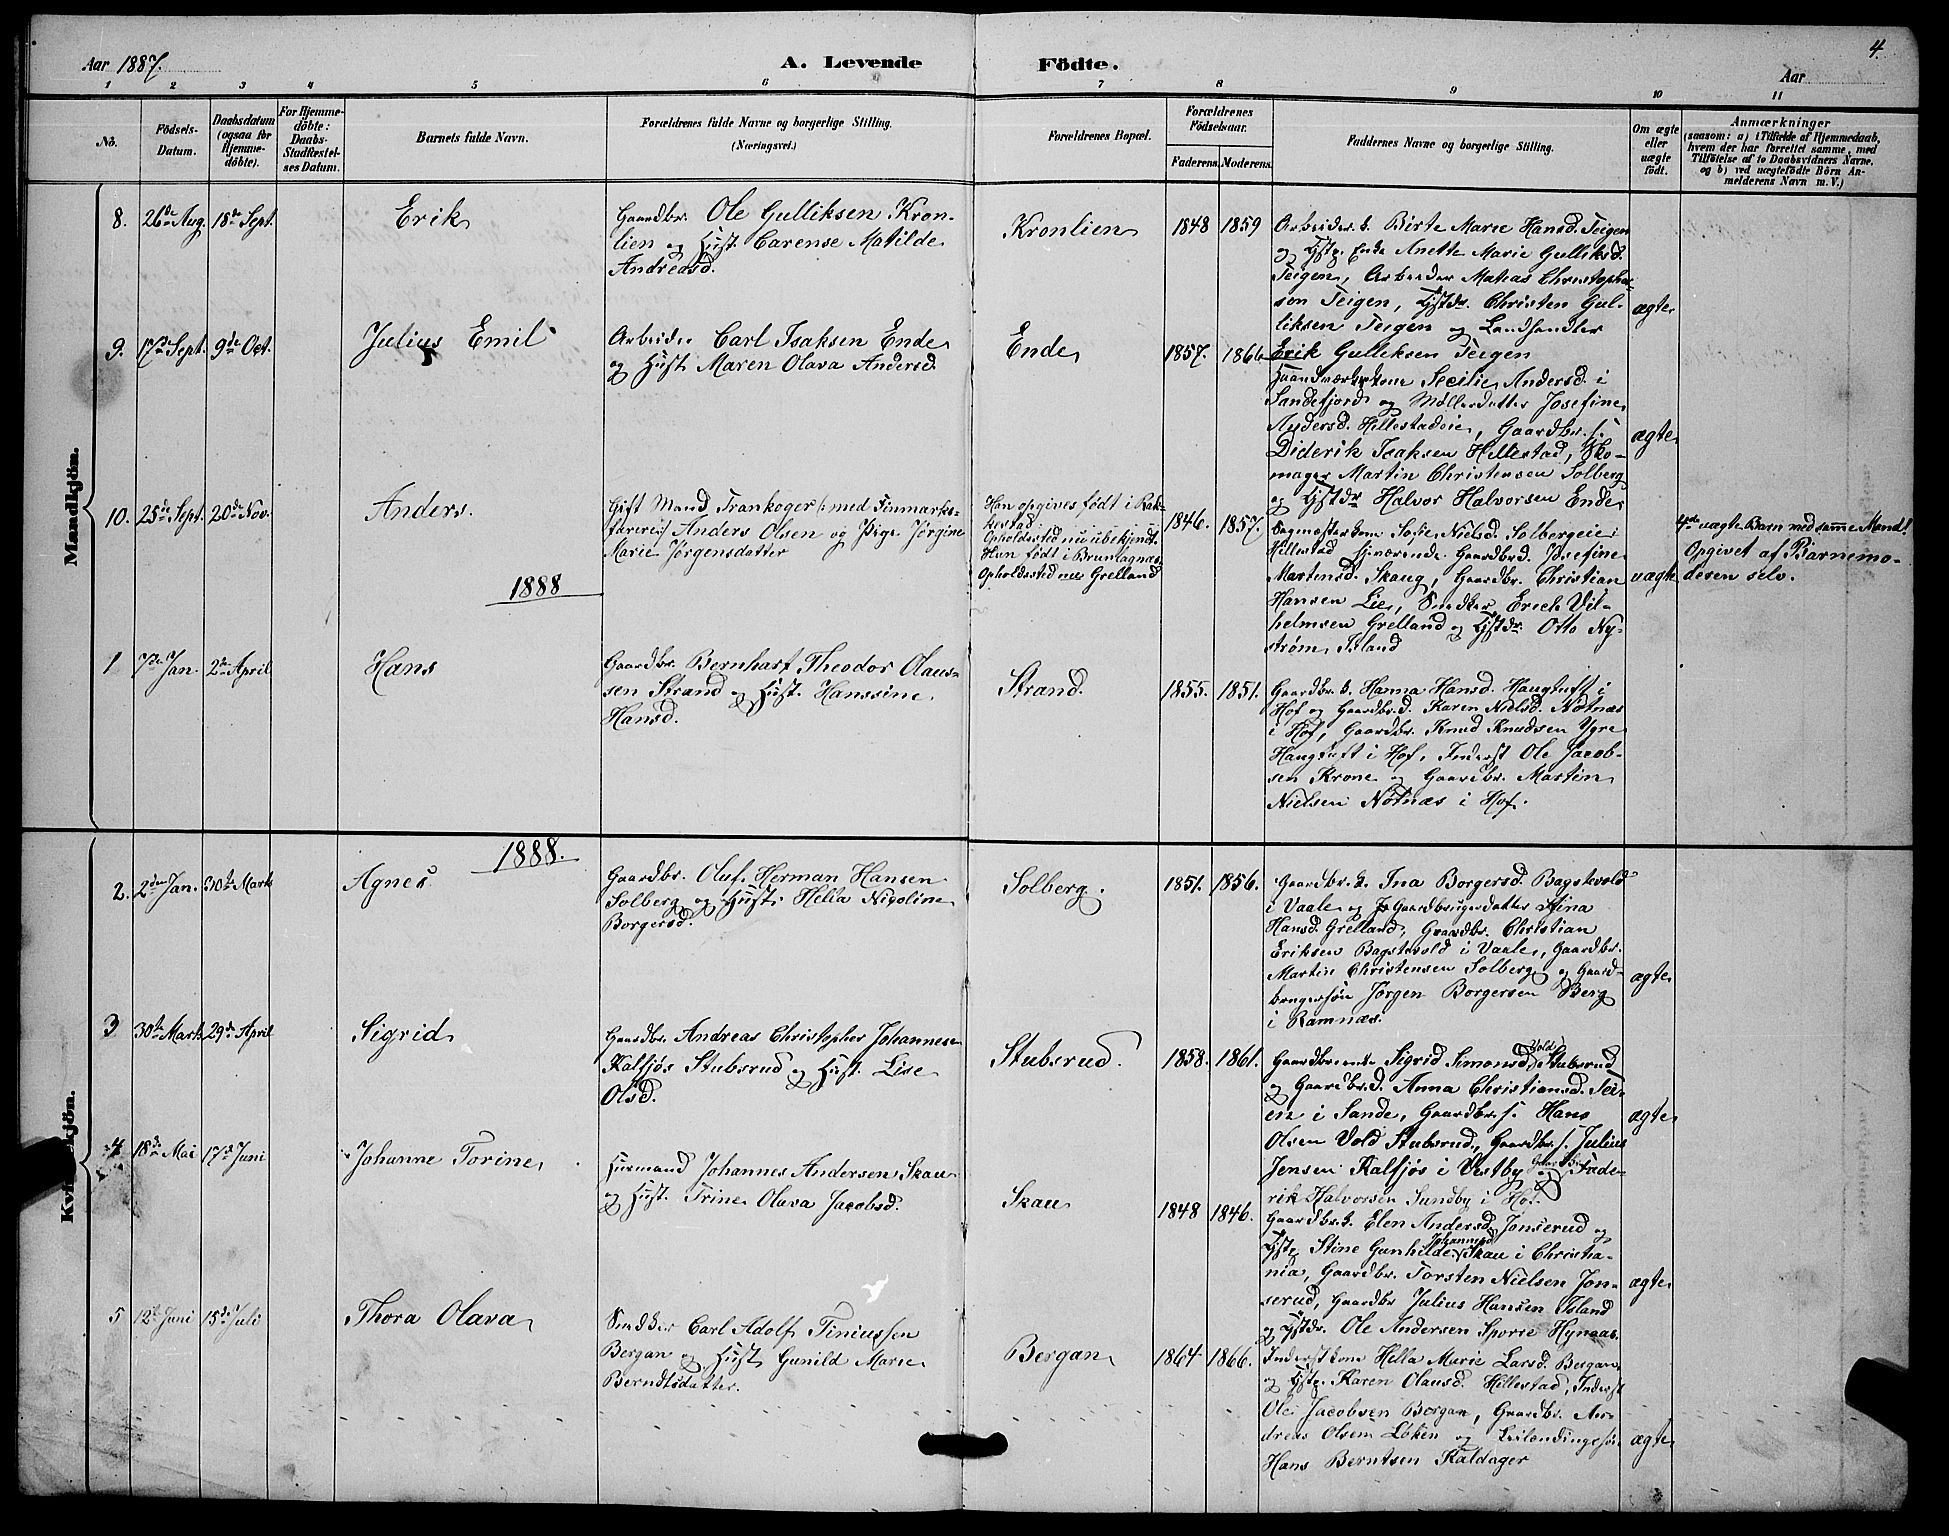 Aar 1887.
A. Levende Födte.
Aar
4.
1 2 3 4 5 6 7 8 9 10 11
No.
Födsels-
Datum.
Daabsdatum
(ogsaa for
Hjemme-
döbte).
For Hjemme-
döbte:
Daabs-
Stadfæstel-
ses Datum.
Barnets fulde Navn.
Forældrenes fulde Navne og borgerlige Stilling.
(Næringsvei.)
Forældrenes Bopæl.
Forældrenes
Födselsaar.
Faderens. Moderens.
Faddernes Navne og borgerlige Stilling.
Om ægte
eller
uægte
födt.
Anmærkninger
(saasom: a) i Tilfælde af Hjemmedaab,
hvem der har forrettet samme, med
Tilföielse af to Daabsvidners Navne,
og b) ved uægtefödte Börn An-
melderens Navn m. V.)
Mandkjön.
8. 26de Aug. 18de Sept.
Erik
Gaardbr. Ole Gulliksen Kron-
lien og Hust. Carense Matilde
Andreasd.
Kronlien
1848 1859
Arbeider k. Birte Marie Hansd. Teigen
og Ende Anette Marie Gulliksd.
Teigen, Arbeider Matias Christopher-
sen Teigen, Christen Gul-
liksen Teigen og Landhandler
Erik Gulliksen Teigen
ægte
9. 17de Sept. 9de Oct.
Julius Emil
Arbeider Carl Isaksen Ende
og Hust. Maren Olava Andersd.
Ende
1857. 1866
Haandværkerkone Secilie Andersd. i
Sandefjord og Møllerdatter Josefine
Andersd. Hillestadeie, Gaardbr. s.
Diderik Isaksen Hillestad, Sko-
mager Martin Christensen Solberg
og Halvor Halvorsen Ende
ægte
10. 25de Sept. 20de Nov.
Anders.
Gift Mand Trankoger /: med Finmarks-
farere :/ Anders Olsen og Pige Jörgine
Marie Jörgensdatter
Han opgives født i Rak-
kestad.
Opholdssted nu ubekjendt.
Hun født i Brunlagnæs
Opholdssted nu Grelland
1846. 1857.
Sagmesterkone Sofie Nielsd. Solbergeie i
Hillestad tjenerende Gaardbrd. Josefine
Martinsd. Skaug, Gaardbr. Christian
Hansen Lie, Snedker Erich Vil-
helmsen Grelland og Otto Ny-
strøm Island
uægte
4de uægte Barn med samme Mand!
Opgivet af Barnemo-
deren selv.
1888
1 7de Jan. 2den April
Hans
Gaardbr. Bernhart Theodor Olaus-
sen Strand og Hust. Hanssine
Hansd.
Strand.
1855. 1851.
Gaardbr. k. Hanna Hansd. Haugtuft i
Hof og Gaardbr.d. Karen Nielsd. Nötnæs
i Hof, Gaardbr. Knud Knudsen Ygre
Haugtuft i Hof, Inderst Ole Jacob-
sen Krone og Gaardbr. Martin
Nielsen Nötnæs i Hof.
1888.
Kvindekjön.
2. 2den Jan. 10de Marts
Agnes
Gaardbr. Oluf Herman Hansen
Solberg og Hust. Hella Nicoline
Borgersd.
Solberg.
1851. 1856.
Gaardbr. k. Ina Borgersd. Bagstevold
i Vaale og Gaardbrugerdatter Stina
Hansd. Grelland, Gaardbr. Christian
Eriksen Bagstevold i Vaale, Gaardbr.
Martin Christensen Solberg og Gaard-
brugersön Jörgen Borgersen Berg
i Ramnæs.
ægte
3 30te Marts 29de April
Sigrid
Gaardbr. Andreas Christopher Johannesen
Kalfjös Stubsrud og Hust. Lise
Olsd.
Stubsrud.
1858. 1861.
Gaardbrenke Sigrid Simonsd. Vold Stubsrud
og Gaardbr.d. Anna Christiansd. Tei-
en i Sande, Gaardbr. s. Hans
Olsen Vold Stubsrud, Gaardbr. s. Julius
Jensen Kalfjös i Vestby og Gaardbr. Frede-
rik Halvorsen Sundby i Hof.
ægte
4 18de Mai 17de Juni
Johanne Torine
Husmand Johannes Andersen Skau
og Hust. Trine Olava Jacobsd.
Skau
1848 1846.
Gaardbr.k. Elen Andersd. Jonserud og
Stine Gunhilde Johannesd. Skau i Christia-
nia, Gaardbr. Torsten Nielsen Jon-
serud, Gaardbr Julius Hansen Island
og Ole Andersen Sporre Hynaas.
ægte
5 12te Juni 15de Juli
Thora Olava
Snedker Carl Adolf Tiniussen
Bergan og Hust. Gunild Marie
Berndtsdatter.
Bergan
1864 1866.
Inderstkone Hella Marie Larsd. Bergan
og Karen Olausd. Hillestad, Inderst
Ole Jacobsen Bergan, Gaardbr. An-
dreas Olsen Løken og Leilændingssön
Hans Berntsen Kaldager
ægte